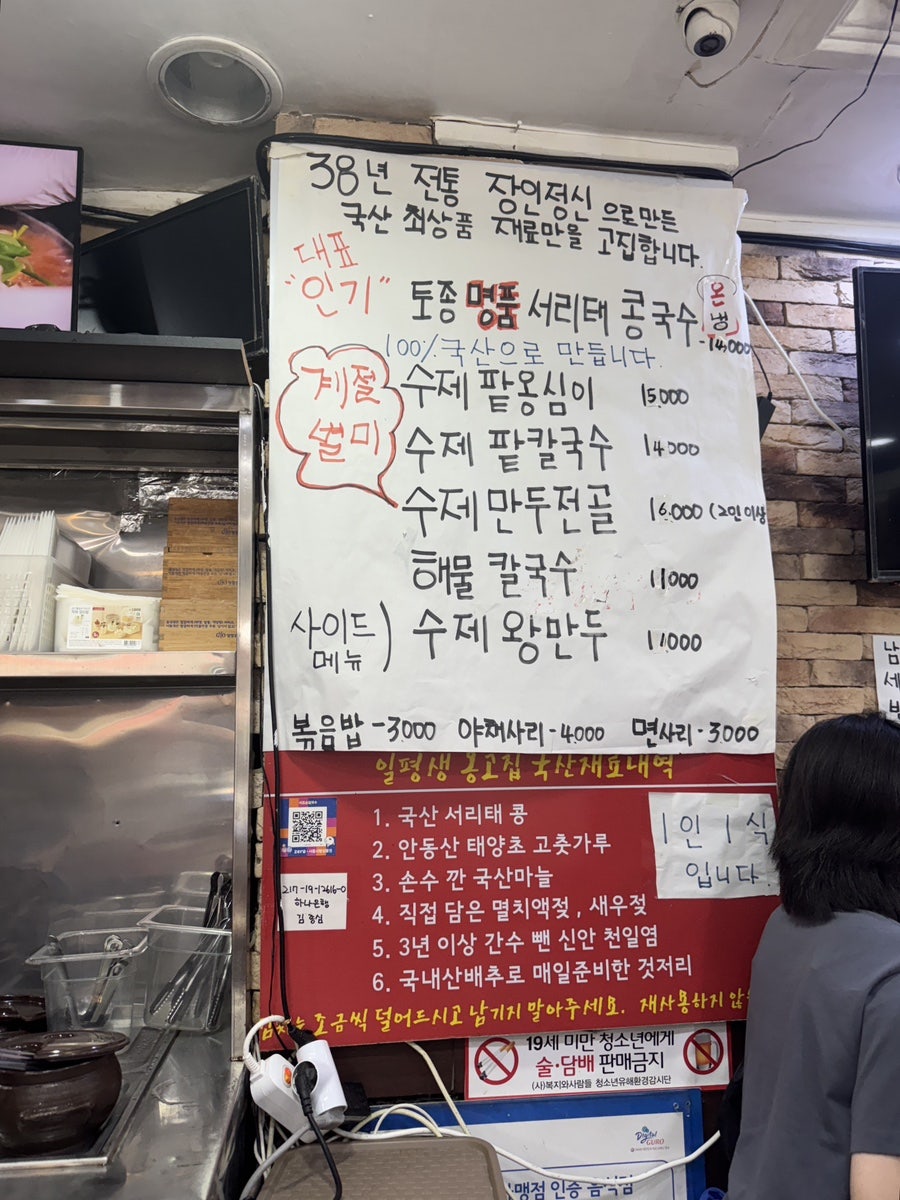 38년 전통 장인정신 으로만든
국산 최상품 재료만을 고집합니다.
대표
"인기"
토종 명품 서리태 콩국수 온 냉 -14,000
100% 국산으로 만듭니다.
계절
별미
수제 팥옹심이 15.000
수제 팥칼국수 14.000
수제 만두전골 16.000 (2인 이상
해물 칼국수 11000
사이드
메뉴) 수제 왕만두 11.000
볶음밥 -3.000 야채사리 -4.000 면사리 -3.000
일평생 옹고집 국산재료내역
1. 국산 서리태 콩
2. 안동산 태양초 고춧가루
3. 손수 깐 국산마늘
4. 직접 담은 멸치액젖 , 새우젖
5. 3년 이상 간수 뺀 신안 천일염
6. 국내산배추로 매일준비한 것저리
조금씩 덜어드시고 남기지 말아주세요. 재사용하지 않
1인 1식
입니다.
217-19-12616-0
하나은행
김 종심
19세 미만 청소년에게
술·담배 판매금지
(사)복지와사람들 청소년유해환경감시단
Digital
GURO
인증 음식점
남
세